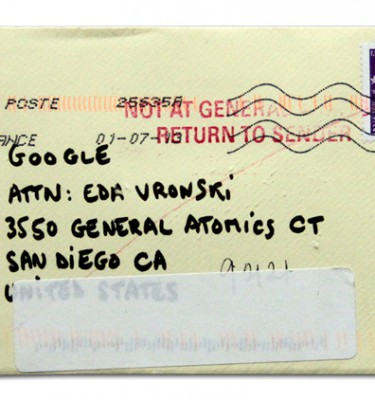 POSTE
NOT AT GENERA
ANCE 01-07-
RETURN TO SENDER
GOOGLE
ATTN: EDA VRONSKI
3550 GENERAL ATOMICS CT
SAN DIEGO CA
92121
UNITED STATES